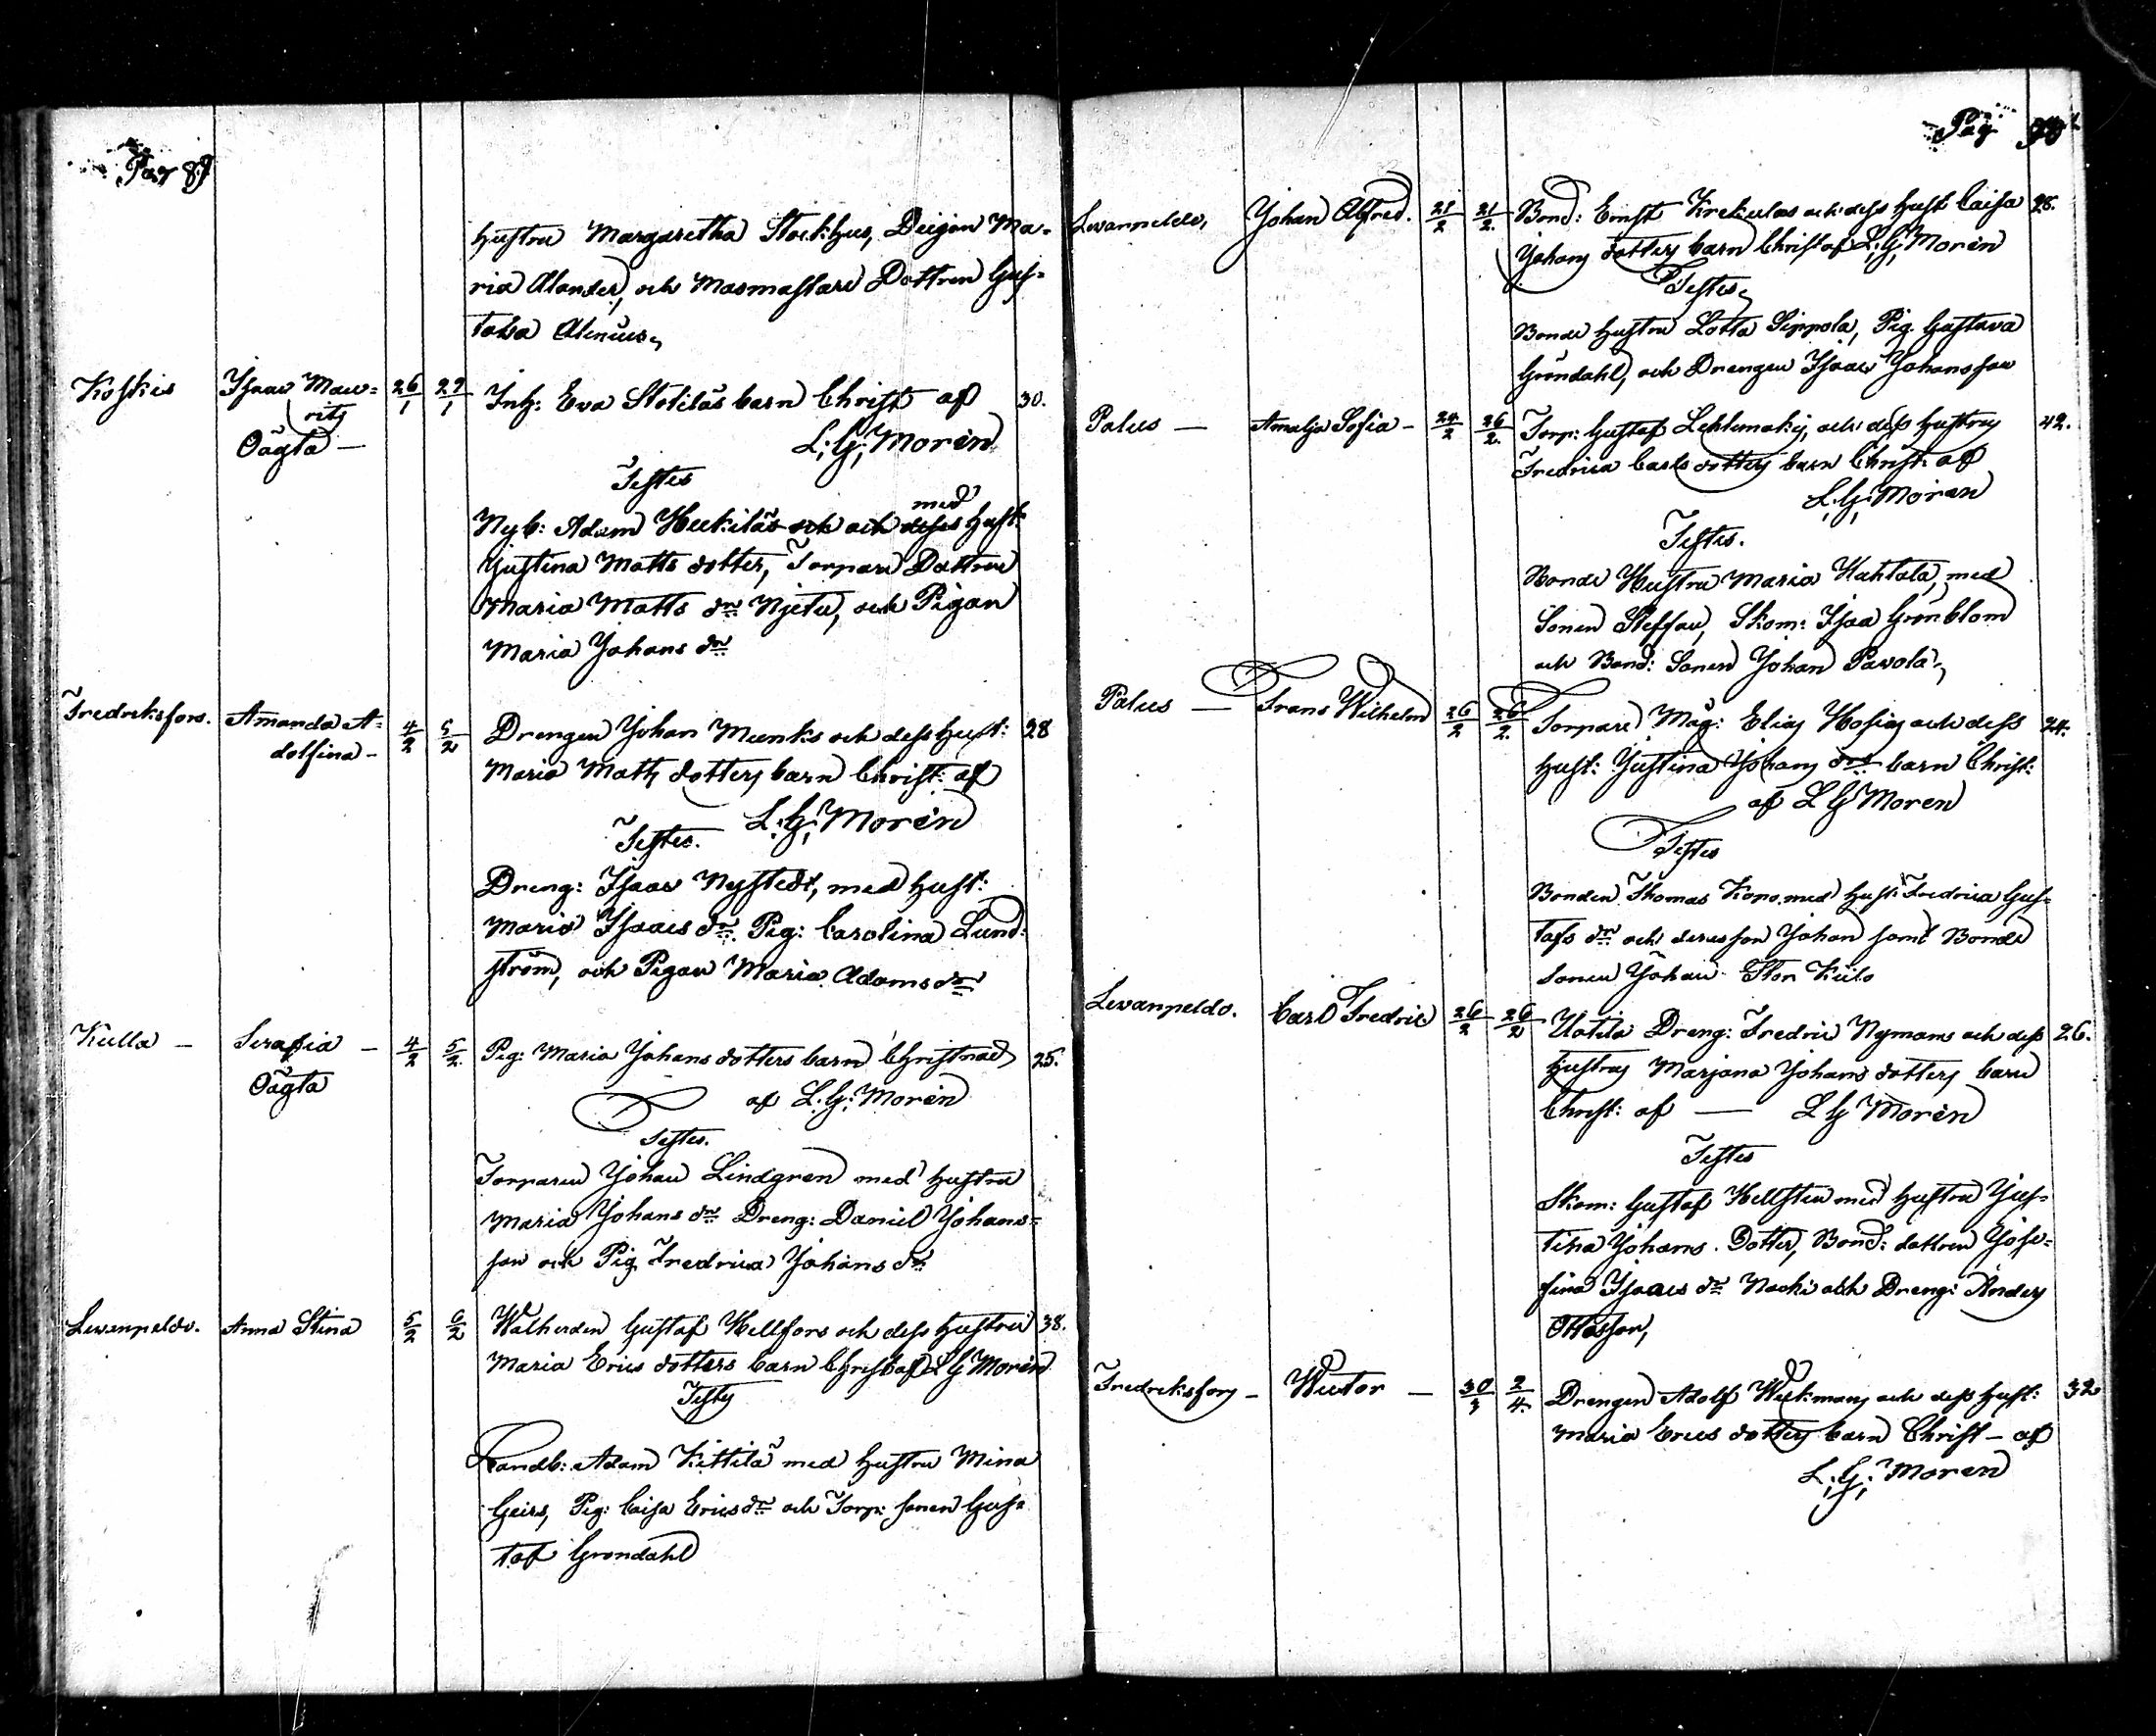 Pag 89
Hustru Margaretha Stockhus, Deijan Ma-
ria Alander, och Masmästare Dottren Gus-
tava Alenius,
Koskis Isaac Mau- 26/1 27/1 Inh: Eva Stotilas barn Christ af 30.
ritz L: G: Morén
Oägta — Testes
med
Nyb: Adam Heikilä och dess Hust:
Justina Matts dotter, Torpare Dottren
Maria Matts dr Njetu, och Pigan
Maria Johans dr
Fredriksfors. Amanda A- 4/2 5/2 Drengen Johan Munks och dess Hust: 28
dolfina - Maria Matts dotters barn Christ: af
L: G: Morén
Testes.
Dreng: Isaac Nystedt, med Hust:
Maria Isaacs dr. Pig: Carolina Lund-
ström, och Pigan Maria Adams dr
Kulla — Serafia — 4/2 5/2. Pig: Maria Johans dotters barn Christnad 25.
Oägta af L. G: Morén
Testes.
Torparen Johan Lindgren med hustru
Maria Johans dr Dreng: Daniel Johans-
son och Pig. Fredrica Johans dr
Levanpeldo. Anna Stina 5/2 6/2 Walherden Gustaf Hellfors och dess Hustru 38.
Maria Erics dotters barn Christ af L G Morén
Testes
Landb: Adam Kittilä med Hustru Mina
Geirs, Pig: Caisa Ericsdr och Torp: sonen Gus-
taf Grondahl
Pag 90
Levanpeldo, Johan Alfred. 21/2 21/2. Bond: Ernst Krekulas och dess Hust Caisa 28.
Johans dotters barn Christ af L: G: Morén
Testes,
Bonde Hustru Lotta Sippola, Pig. Gustava
Gröndahl, och Drengen Isaac Johansson
Palus — Amalja Sofia - 24/2 26/2. Torp: Gustaf Lehlemakis, och dess Hustrus 42.
Fredrica Carls dotters barn Christ: af
L: G: Morén
Testes.
Bonde Hustru Maria Uahtola, med
Sonen Steffan, Skom: Isaa Grönblom
och Bond: Sonen Johan Pavola,
Palus — Frans Wilhelm 26/2 26/2. Torpare Mag: Elias Hosias och dess 24.
Hust: Justina Johans drs barn Christ:
af L G Morén
Testes
Bonden Thomas Kopo med Hust: Fredrica Gus-
tafs dr och deras son Johan samt Bonde
sonen Johan Stor Kiilo
Levanpeldo. Carl Fredric 26/2 26/2 Uotila Dreng: Fredric Nymans och dess 26.
Hustrus Marjana Johans dotters barn
Christ: af — L G Morén
Testes
Skom: Gustaf Hellsten med Hustru Jus-
tina Johans. Dotter, Bond: dottren Jose-
fina Isaacs dr Nocki och Dreng: Anders
Ottosson,
Fredriksfors - Wictor — 30/3 2/4. Drengen Adolf Wickmans och dess Hust: 32
Maria Erics dotters barn Christ - af
L: G: Morén